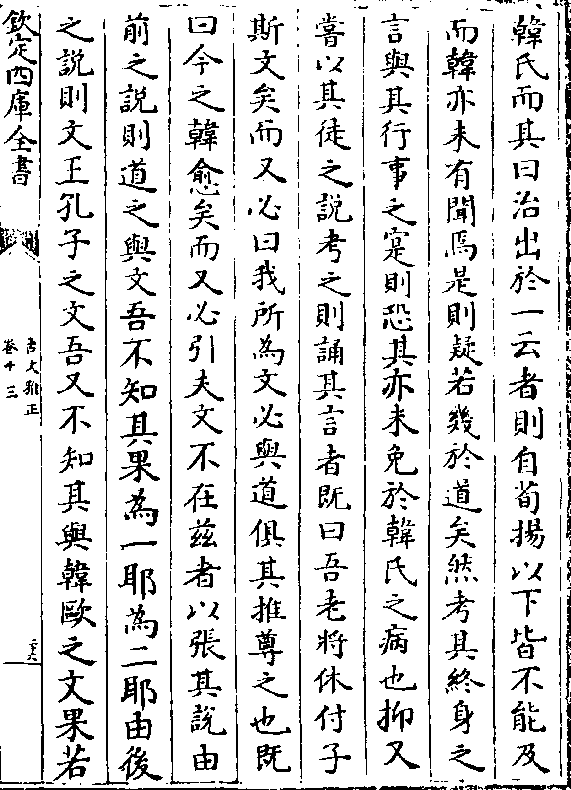 韓氏而其曰治出於一云者則自荀揚以下皆不能及
而韓亦未有聞焉是則疑若幾於道矣然考其終身之
言與其行事之寔則恐其亦未免於韓氏之病也抑又
嘗以其徒之說考之則誦其言者既曰吾老將休付子
斯文矣而又必曰我所為文必與道俱其推尊之也既
曰今之韓愈矣而又必引夫文不在兹者以張其說由
前之說則道之與文吾不知其果為一耶為二耶由後
之說則文王孔子之文吾又不知其與韓歐之文果若
欽定四庫全書
古文雅正
卷十三
二六